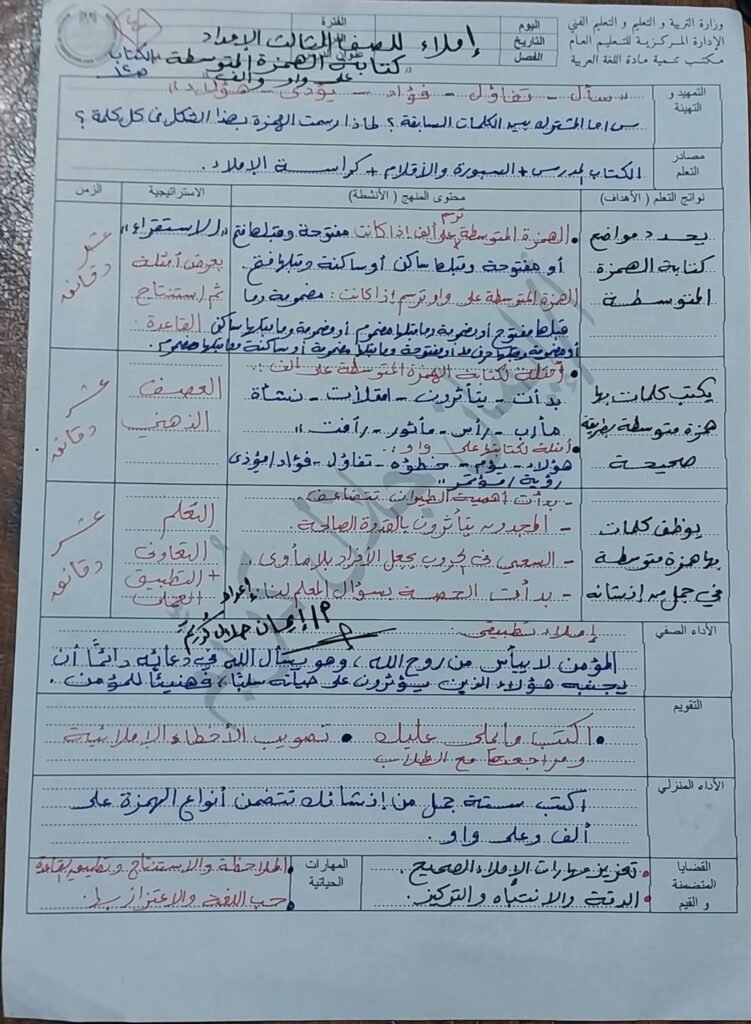 وزارة التربية و التعليم و التعليم الفني
الإدارة المركزية للتعليم العام
مكتب تنمية مادة اللغة العربية
اليوم
التاريخ
الفصل
الفترة
إملاء للصف الثالث الإعدادى
كتابة الهمزة المتوسطة
على واو وألف
الكتاب
التمهيد و التهيئة
"سأل - تفاؤل - فؤاد - يؤذى - هؤلاء"
س/ما المشترك بين الكلمات السابقة ؟ لماذا رسمت الهمزة بهذا الشكل فى كل كلمة ؟
مصادر التعلم
الكتاب المدرسى + السبورة والأقلام + كراسة الإملاء .
نواتج التعلم ( الأهداف)
محتوى المنهج ( الأنشطة)
الاستراتيجية
الزمن
يحدد مواضع
كتابة الهمزة
المتوسطة
الهمزة المتوسطة ترسم على ألف إذا كانت مفتوحة وقبلها فتح
أو مفتوحة وقبلها ساكن أو ساكنة وقبلها فتح
الهمزة المتوسطة على واو ترسم إذا كانت : مضمومة وما
قبلها مفتوح أو مضمومة وما قبلها مضموم أو مضمومة وما قبلها ساكن
أو مضمومة وقبلها حرف مد أو مفتوحة وما قبلها مضموم أو ساكنة وما قبلها مضموم.
"الاستقراء"
بعرض أمثلة
ثم استنتاج
القاعدة
عشر دقائق
يكتب كلمات بها
همزة متوسطة بطريقة
صحيحة
أمثلة لكتابة الهمزة المتوسطة على ألف :
بدأت - يتأثرون - امتلأت - نشأة
مأرب - رأس - مأثور - رأفت "
أمثلة لكتابة على واو :
هؤلاء - يؤم - خطؤه - تفاؤل - فؤاد / مؤذى
رؤية / مؤتمر "
العصف
الذهني
عشر دقائق
يوظف كلمات
بها همزة متوسطة
في جمل من إنشائه
- بدأت أهمية الطيران تتضاعف.
- المجدون يتأثرون بالقدوة الصالحة.
- السعي فى الحروب يجعل الأفراد بلا مأوى .
- بدأت الحصة بسؤال المعلم لنا .
التعلم
التعاونى
+ التطبيق
العملى
عشر دقائق
إعداد
أ/ إيمان جلال كُريم
الأداء الصفي
إملاء تطبيقى :
المؤمن لا ييأس من روح الله ، وهو يسأل الله في دعائه دائمًا أن
يجنبه هؤلاء الذين يؤثرون على حياته سلبًا ، فهنيئًا للمؤمن .
التقويم
• اكتب ما يملى عليك • تصويب الأخطاء الإملائية
ومراجعتها مع الطلاب
الأداء المنزلي
اكتب ستة جمل من إنشائك تتضمن أنواع الهمزة على
ألف وعلى واو .
القضايا المتضمنة و القيم
• تعزيز مهارات الإملاء الصحيح .
• الدقة والانتباه والتركيز .
المهارات الحياتية
• الملاحظة والاستنتاج وتطبيق القاعدة
• حب اللغة والاعتزاز بها .